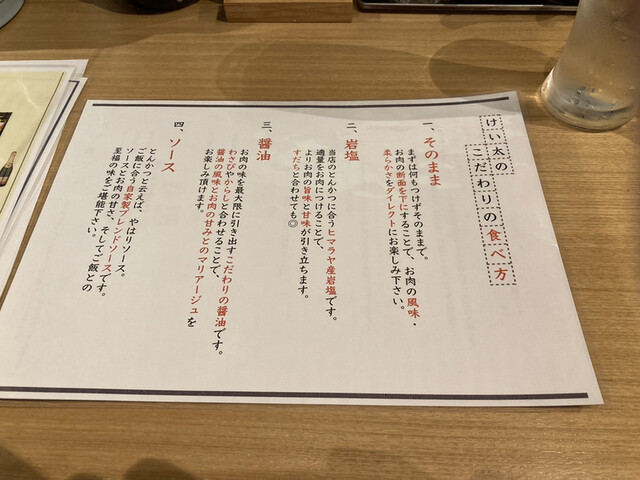 けい太の
こだわりの食べ方
一、そのまま
まずは何もつけずそのままで。
お肉の断面を下にすることで、お肉の風味・
柔らかさをダイレクトにお楽しみ下さい。
二、岩塩
当店のとんかつに合うヒマラヤ産岩塩です。
適量をお肉につけることで、
よりお肉の旨味と甘味が引き立ちます。
すだちと合わせても◎
三、醤油
お肉の味を最大限に引き出すこだわりの醤油です。
わさびやからしと合わせることで、
醤油の風味とお肉の甘みとのマリアージュを
お楽しみ頂けます。
四、ソース
とんかつと云えば、やはりソース。
ご飯に合う自家製ブレンドソースです。
ソースとお肉の甘さ、そしてご飯との
至福の味をご堪能下さい。